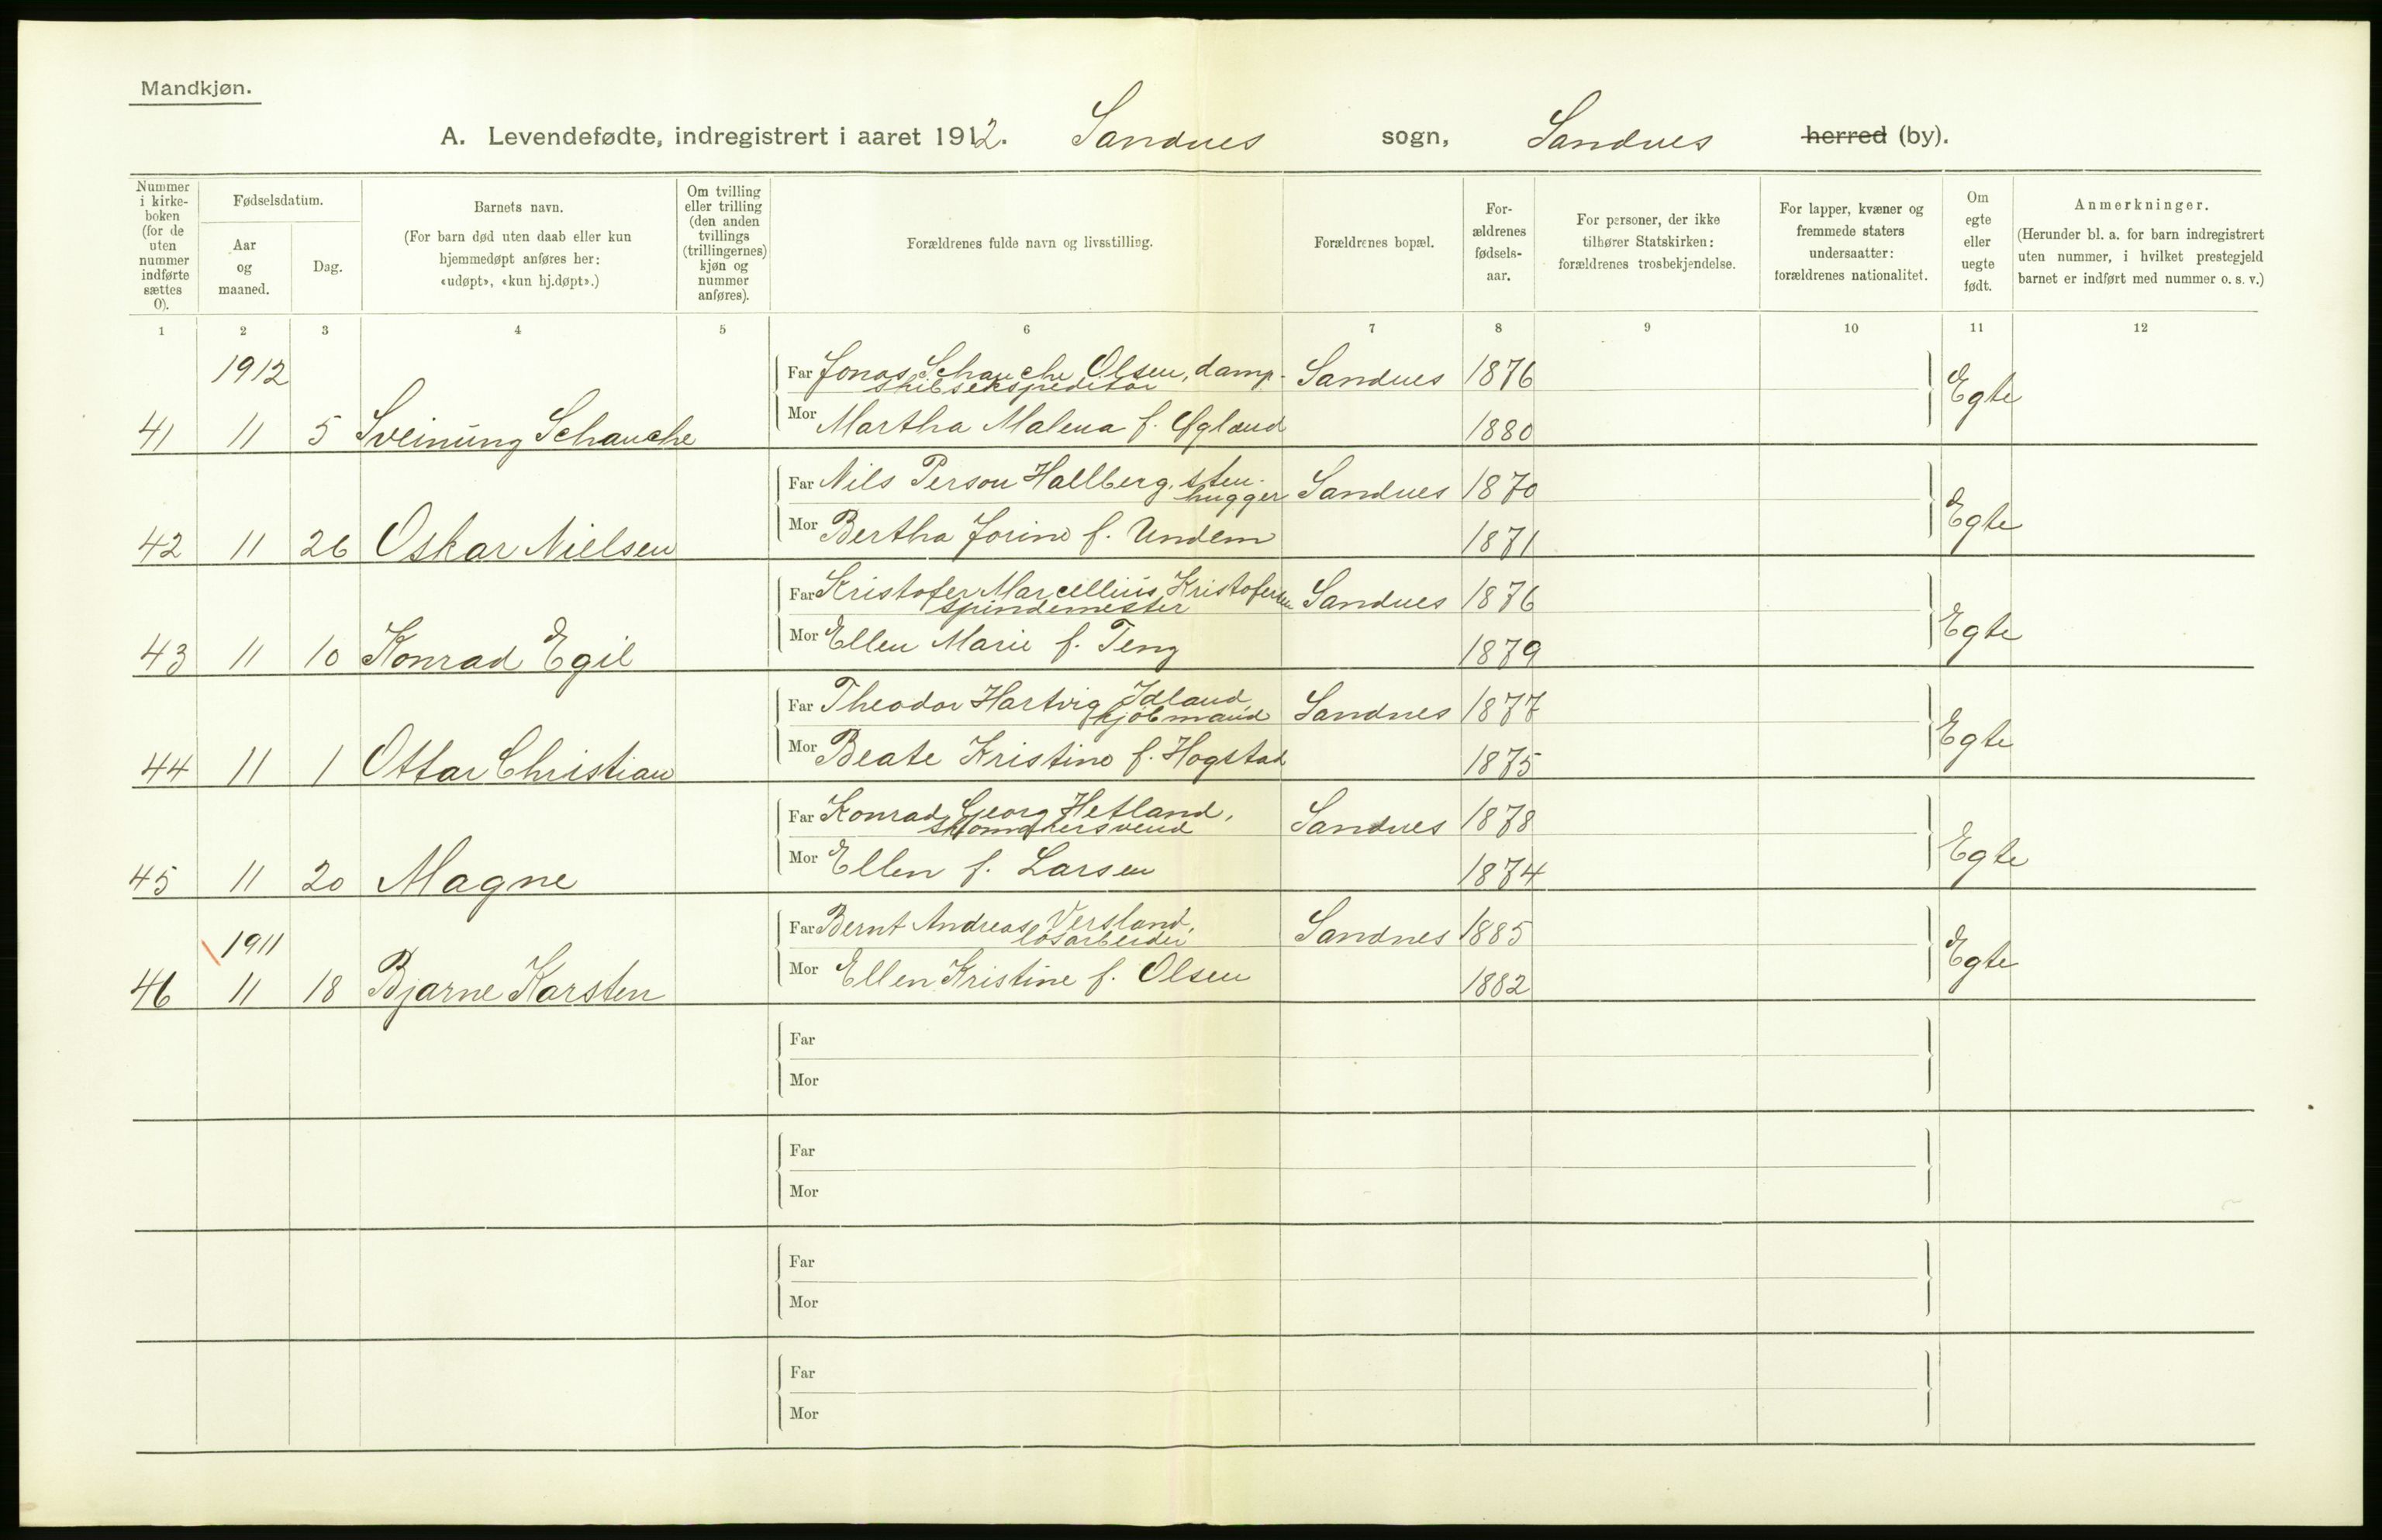 Mandkjøn.
A. Levendefødte, indregistrert i aaret 1912. Sandnes sogn, Sandnes herred (by).
Nummer i kirkeboken (for de uten nummer indførte sættes 0).
Fødselsdatum.
Aar og maaned.
Dag.
Barnets navn.
(For barn død uten daab eller kun hjemmedøpt anføres her: «udøpt», «kun hj.døpt».)
Om tvilling eller trilling (den anden tvillings (trillingernes) kjøn og nummer anføres).
Forældrenes fulde navn og livsstilling.
Forældrenes bopæl.
Forældrenes fødselsaar.
For personer, der ikke tilhører Statskirken: forældrenes trosbekjendelse.
For lapper, kvæner og fremmede staters undersaatter: forældrenes nationalitet.
Om egte eller uegte født.
Anmerkninger.
(Herunder bl. a. for barn indregistrert uten nummer, i hvilket prestegjeld barnet er indført med nummer o. s. v.)
1 2 3 4 5 6 7 8 9 10 11 12
1912
Far Jonas Schauche Olsen, damp- Sandnes 1876
skibsekspeditør
41 11 5 Sveinung Schauche Mor Martha Malena f. Øgland 1880 Egte
Far Nils Person Hallberg, sten- Sandnes 1870
hugger
42 11 26 Oskar Nielsen Mor Bertha Jorine f. Undem 1871 Egte
Far Kristofer Marcellius Kristofersen Sandnes 1876
spindemester
43 11 10 Konrad Egil Mor Ellen Marie f. Teng 1879 Egte
Far Theodor Hartvig Idland, Sandnes 1877
kjøbmand
44 11 1 Ottar Christian Mor Beate Kristine f. Hogstad 1875 Egte
Far Konrad Georg Hetland, Sandnes 1878
skomakersvend
45 11 20 Magne Mor Ellen f. Larsen 1874 Egte
1911
Far Bernt Andreas Versland, Sandnes 1885
løsarbeider
46 11 18 Bjarne Karsten Mor Ellen Kristine f. Olsen 1882 Egte
Far
Mor
Far
Mor
Far
Mor
Far
Mor